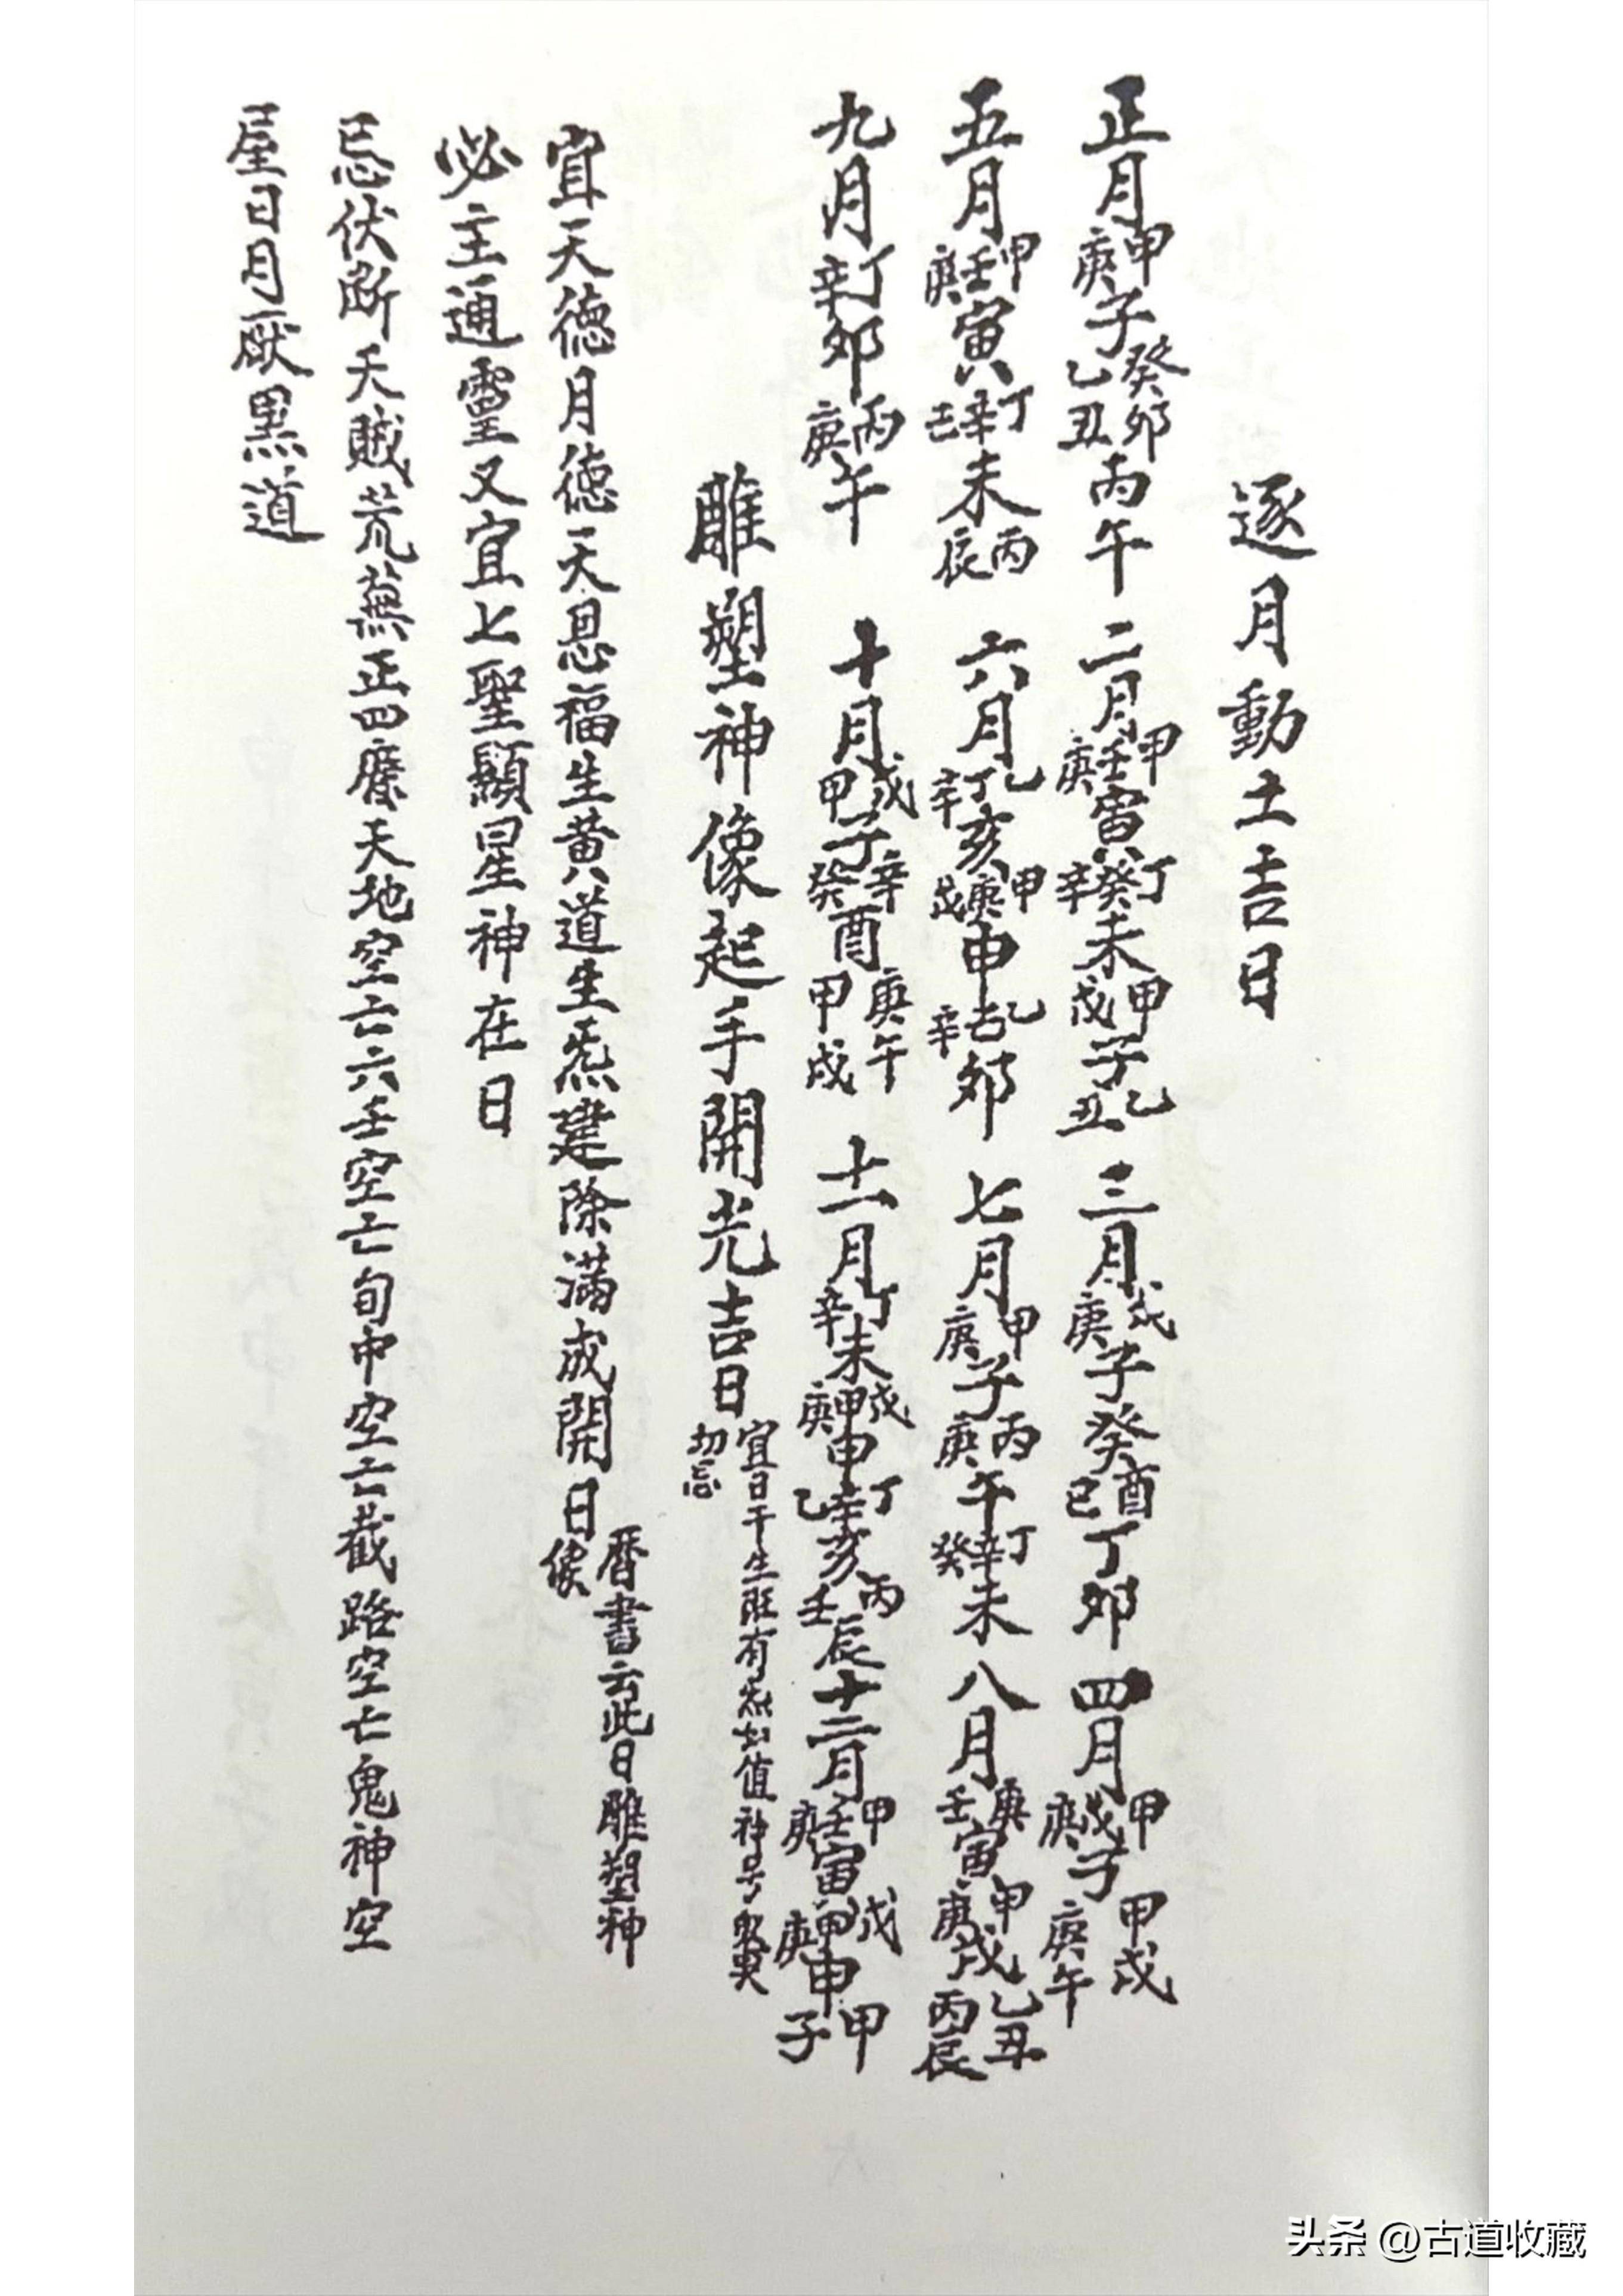 逐月動土吉日
正月甲庚子癸卯乙丑丙午 二月甲壬庚寅丁癸辛未甲戊子乙丑 三月戊庚子癸酉巳丁卯 四月甲戊庚子甲戌庚午
五月甲壬庚寅丁辛壬未丙辰 六月乙丁辛亥甲庚戊申乙辛卯 七月甲庚子丙庚午丁辛癸未 八月庚壬寅甲庚戌乙丑丙辰
九月丁辛卯丙庚午 十月戊甲子辛癸酉庚午甲戌 十一月丁辛未戊甲庚申丁辛乙亥丙壬辰 十二月甲壬庚寅戊甲庚申甲子
雕塑神像起手開光吉日 宜日干生旺有炁如值神号 切忌
宜天德月德天恩福生黃道生炁建除滿成開日 曆書云此日雕塑神像
必主通靈又宜七聖顯星神在日
忌伏断天賊荒蕪正四廢天地空亡六壬空亡旬中空亡截路空亡鬼神空
屋日月厭黑道
头条 @古道收藏